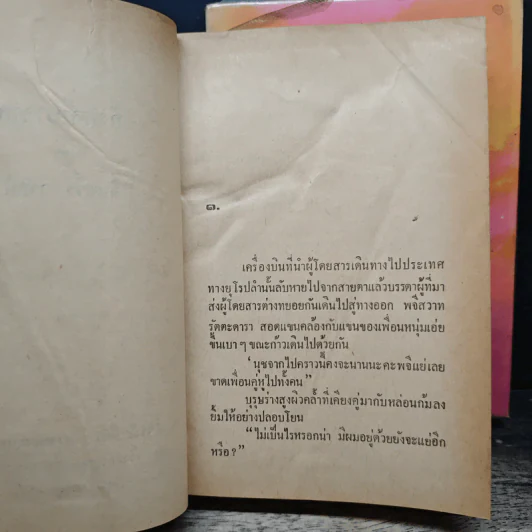 ๑.
เครื่องบินที่นำผู้โดยสารเดินทางไปประเทศ
ทางยุโรปลำนั้นลับหายไปจากสายตาแล้วบรรดาผู้ที่มา
ส่งผู้โดยสารต่างทยอยกันเดินไปสู่ทางออก พจีสวาท
รัตตะดารา สอดแขนคล้องกับแขนของเพื่อนหนุ่มเอ่ย
ขึ้นเบา ๆ ขณะก้าวเดินไปด้วยกัน
“นุชจากไปคราวนี้คงจะนานนะคะพจีแย่เลย
ขาดเพื่อนคู่หูไปทั้งคน”
บุรุษร่างสูงผิวคล้ำที่เคียงคู่มากับหล่อนก้มลง
ยิ้มให้อย่างปลอบโยน
“ไม่เป็นไรหรอกน่า มีผมอยู่ด้วยยังจะแย่อีก
หรือ?”